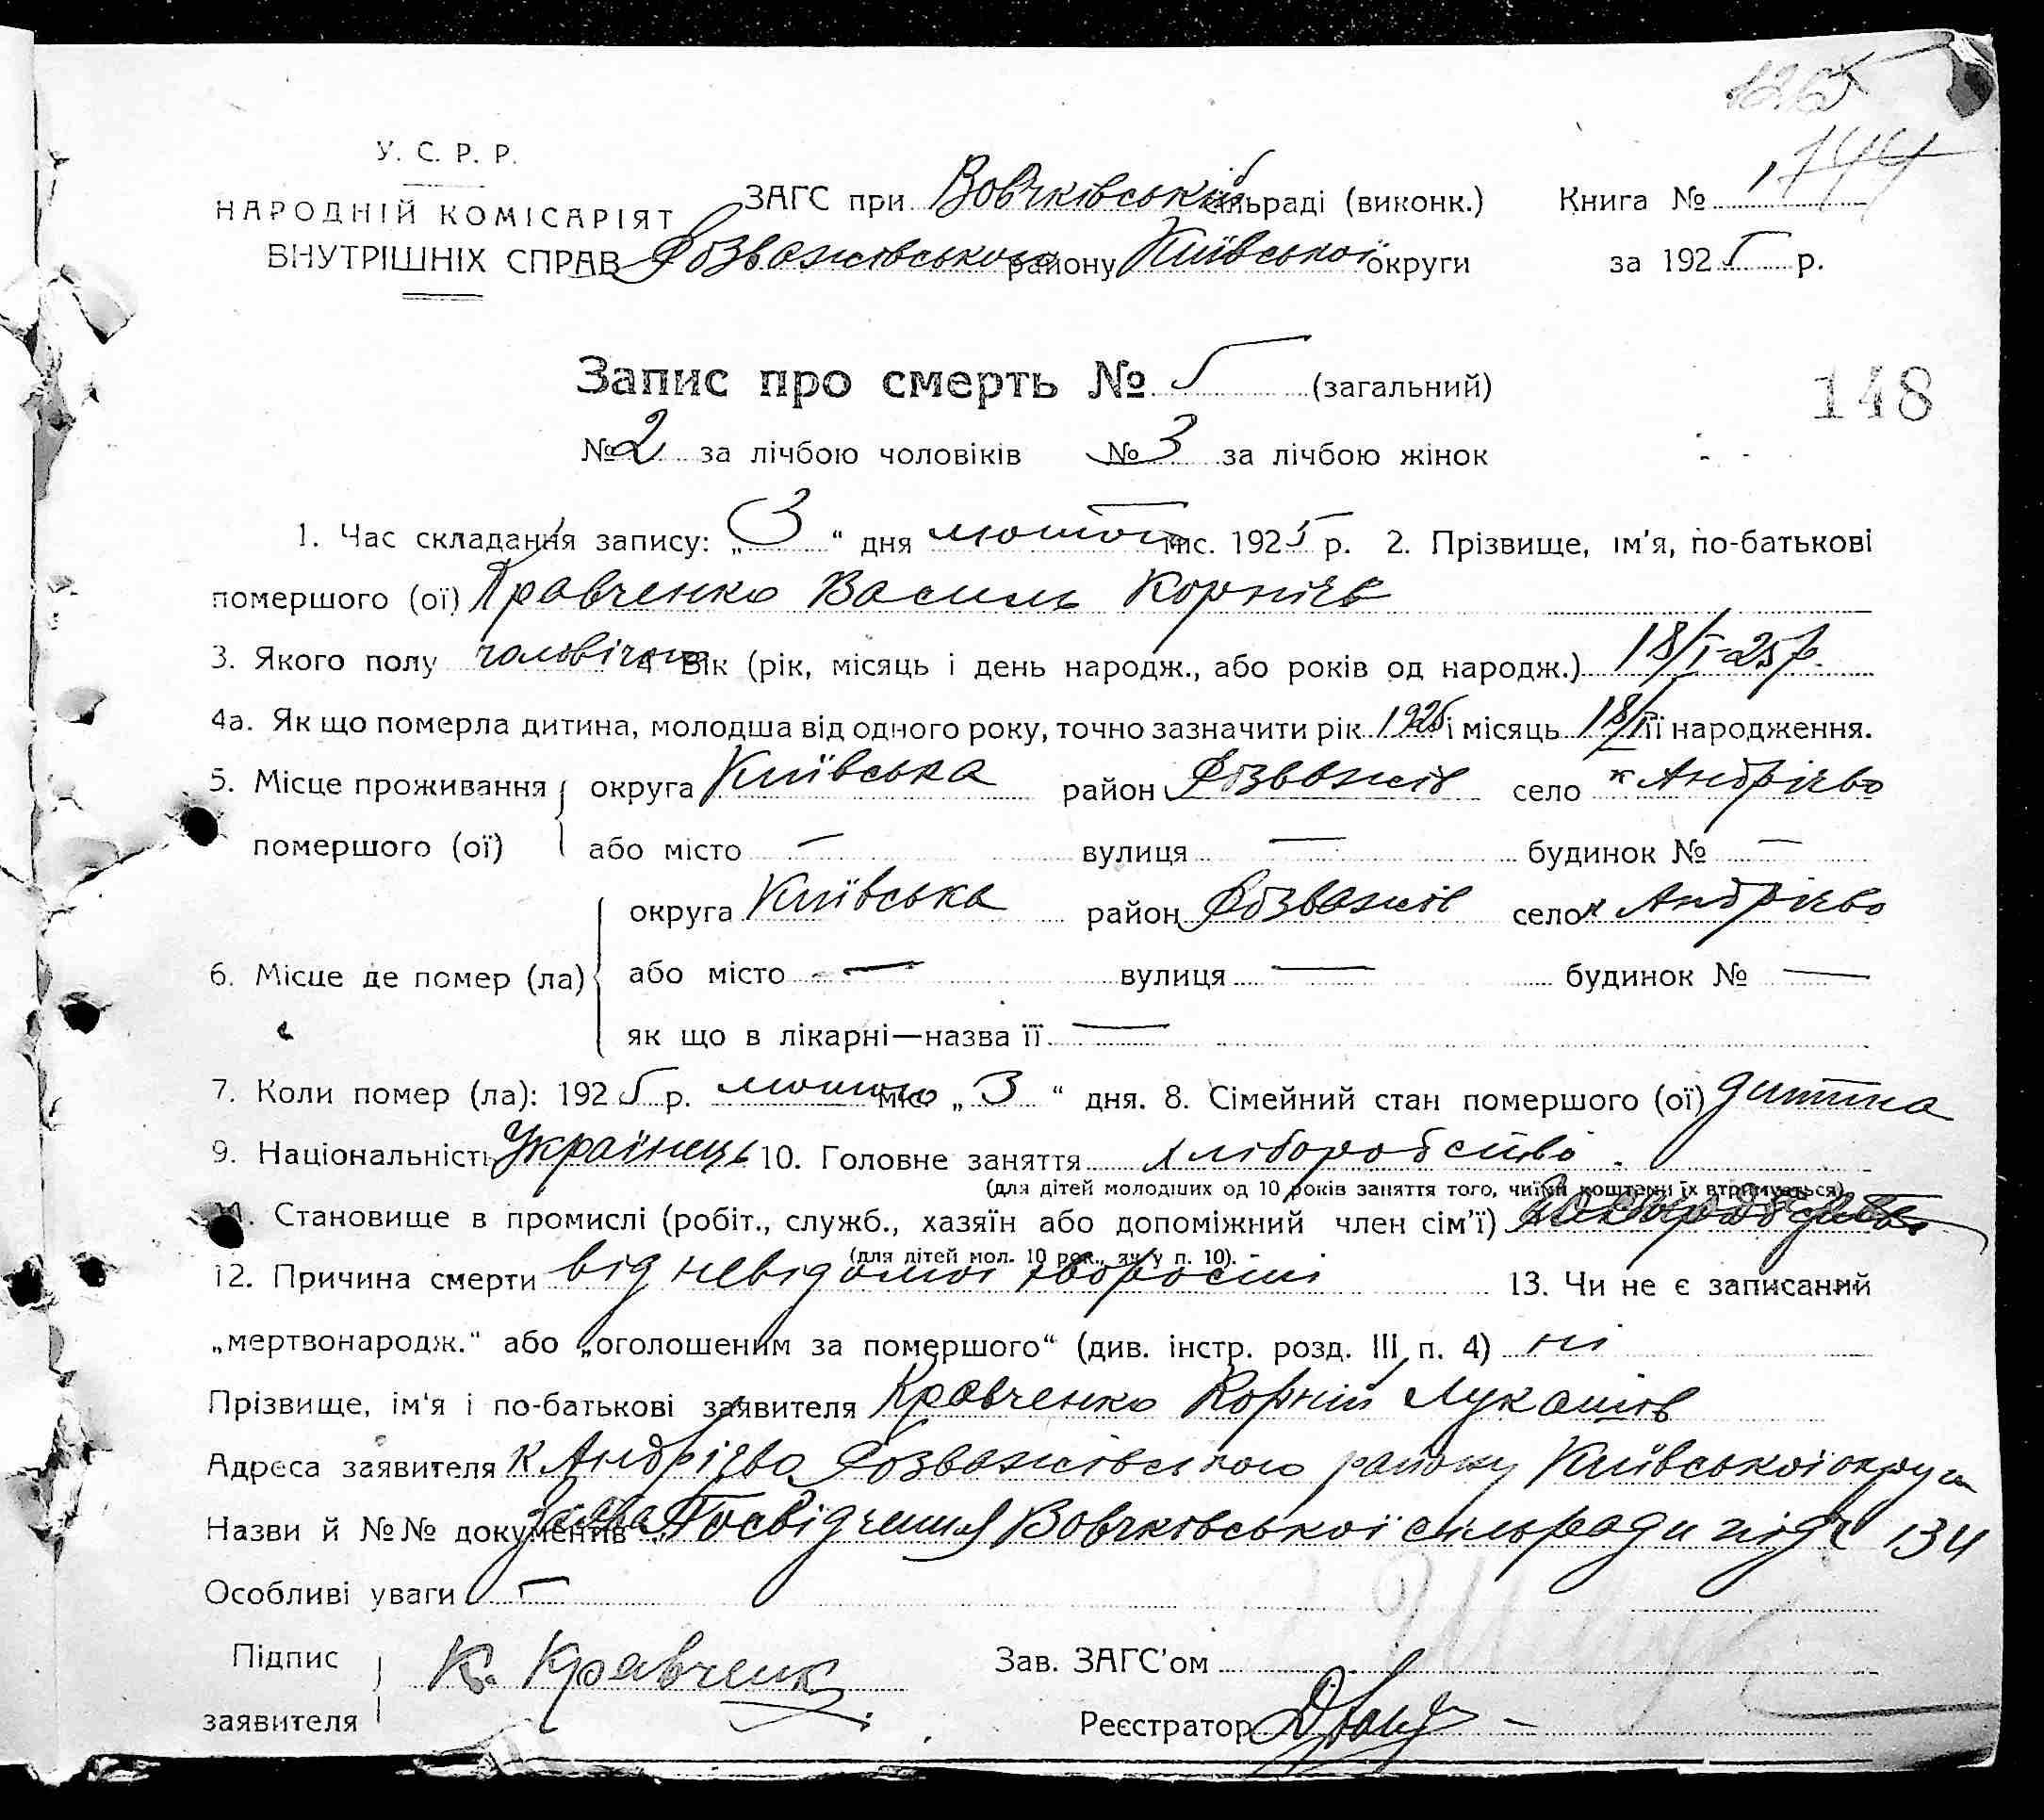 У. С. Р. Р.
НАРОДНІЙ КОМІСАРІЯТ
ВНУТРІШНІХ СПРАВ
ЗАГС при Вовчківській сільраді (виконк.)
Розважівського району Київської округи
Книга № 1
за 1925 р.
144
Запис про смерть № 5 (загальний)
148
№ 2 за лічбою чоловіків № 3 за лічбою жінок
1. Час складання запису: „3“ дня лютого міс. 1925 р. 2. Прізвище, ім’я, по-батькові
помершого (ої) Кравченко Василь Корнієв
3. Якого полу чоловічого 4. Вік (рік, місяць і день народж., або років од народж.) 18/I-25 р.
4а. Як що померла дитина, молодша від одного року, точно зазначити рік 1925 і місяць 18/I її народження.
5. Місце проживання помершого (ої) округа Київська район Розважів село к Андрієво
або місто — вулиця — будинок № —
6. Місце де помер (ла) округа Київська район Розважів село к Андрієво
або місто — вулиця — будинок № —
як що в лікарні—назва її —
7. Коли помер (ла): 1925 р. лютого міс. „3“ дня. 8. Сімейний стан помершого (ої) дитина
9. Національність Українець 10. Головне заняття хліборобство.
(для дітей молодших од 10 років заняття того, чиїми коштами їх втримується)
11. Становище в промислі (робіт., служб., хазяїн або допоміжний член сім’ї)
(для дітей мол. 10 рок., як у п. 10).
12. Причина смерти від невідомої хворости 13. Чи не є записаний
„мертвонародж.“ або „оголошеним за помершого“ (див. інстр. розд. III п. 4) ні
Прізвище, ім’я і по-батькові заявителя Кравченко Корній Лукашів
Адреса заявителя к Андрієво Розважівського району Київської округи
Назви й №№ документів Посвідчення Вовчківської сільради під ч 134
Особливі уваги —
Підпис заявителя К. Кравченк
Зав. ЗАГС’ом
Реєстратор